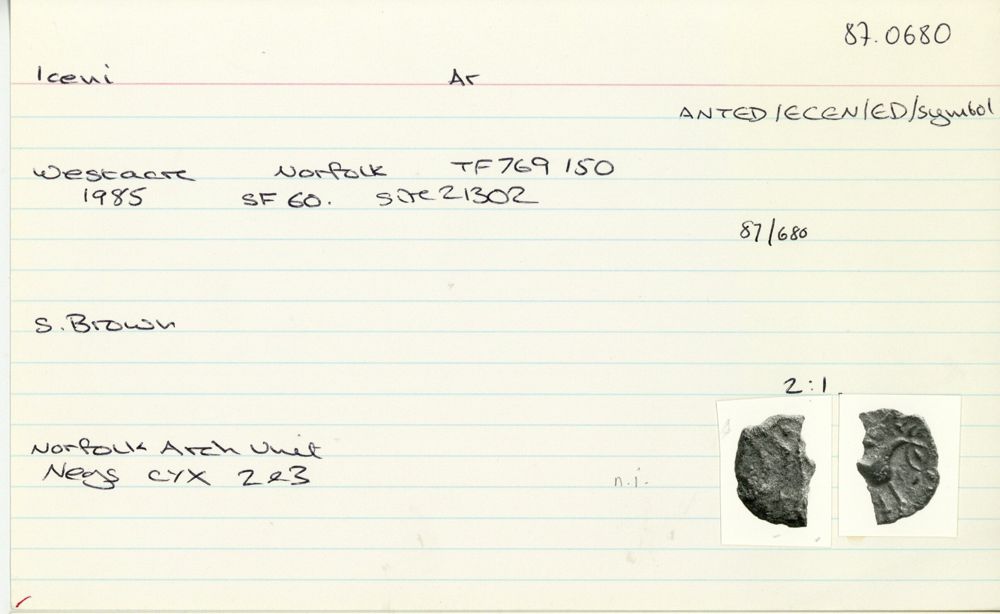 87.0680
Iceni Ar
ANTED/ECEN/ED/symbol
Westacre Norfolk TF 769 150
1985 SF 60. Site 21302
87/680
S. Brown
2:1
Norfolk Arch Unit
Negs CYX 2&3
n.i.